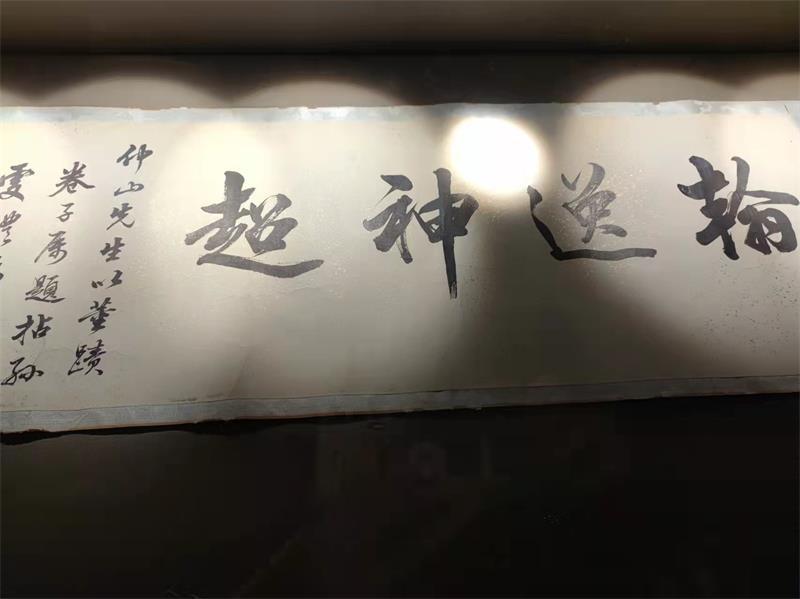 翰逸神超
仲山先生以董蹟
卷子属題拈孫
虔